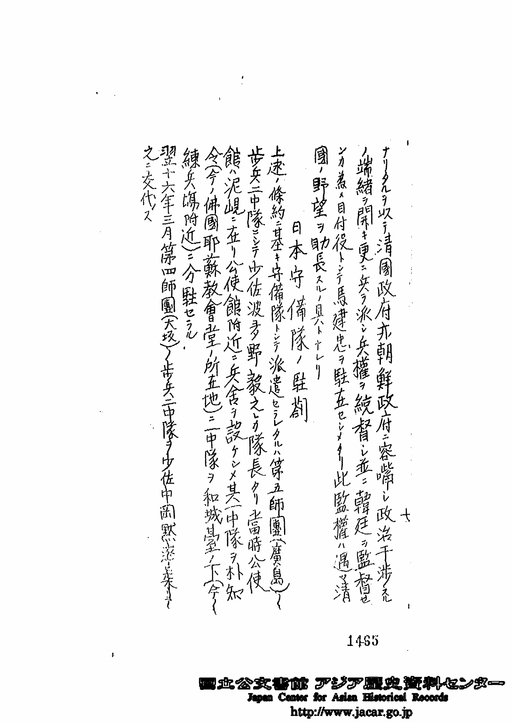 ナリタルヲ以テ清國政府亦朝鮮政府ニ容嘴シ政治干渉スル
ノ端緒ヲ開キ更ニ兵ヲ派シ兵權ヲ統督シ並ニ韓廷ヲ監督セ
ンカ為メ目付役トシテ馬建忠ヲ駐在セシメタリ此監權ハ適マ清
國ノ野望ヲ助長スルノ具トナレリ
日本守備隊ノ駐劄
上述ノ條約ニ基キ守備隊トシテ派遣セラレタルハ第五師團(廣島)ノ
歩兵二中隊ニシテ少佐波多野毅之レカ隊長タリ當時公使
館ハ泥峴ニ在リ公使館附近ニ兵舎ヲ設ケシメ其一中隊ヲ朴知
令(今ノ佛國耶蘇教會堂ノ所在地)ニ一中隊ヲ和城臺ノ下(今ノ
練兵場附近)ニ分駐セラル
翌十六年三月第四師團(大坂)ノ歩兵二中隊ヲ少佐中岡黙
之ニ交代ス
七
1465
國立公文書館 アジア歴史資料センター
Japan Center for Asian Historical Records
http://www.jacar.go.jp